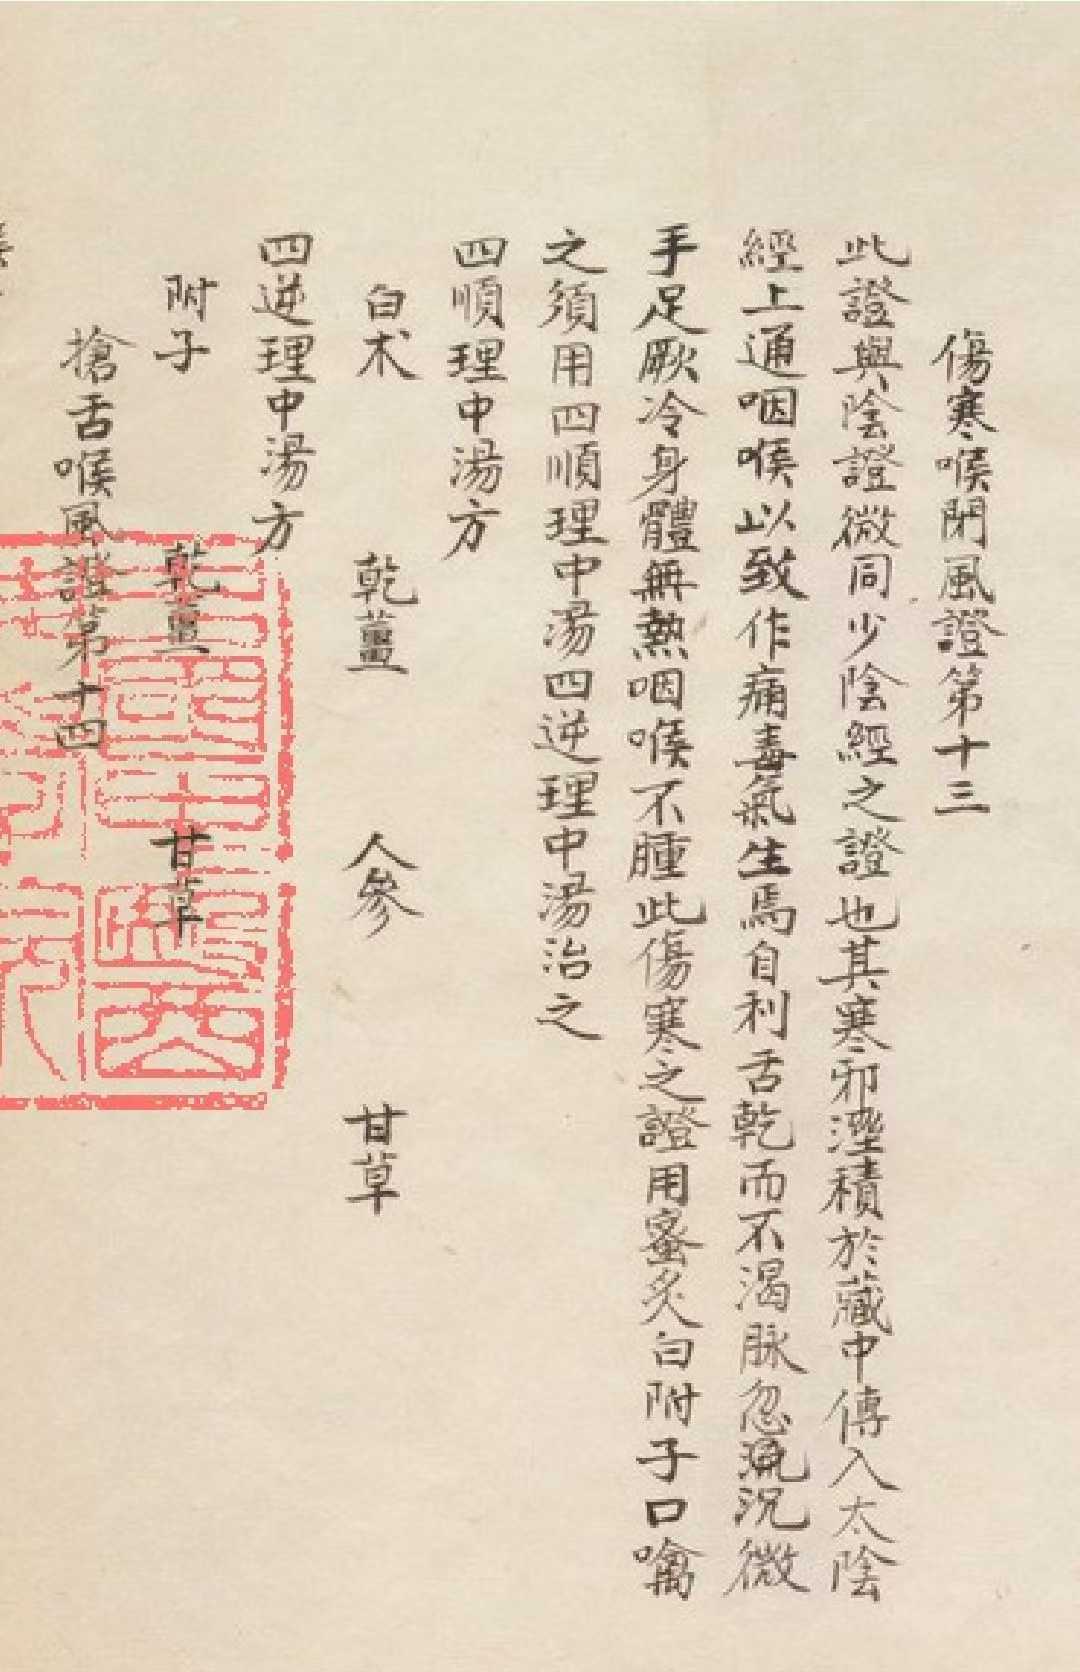 傷寒喉閉風證第十三
此證與陰證微同少陰經之證也其寒邪溼積於藏中傳入太陰
經上通咽喉以致作痛毒氣生焉自利舌乾而不渴脉忽沉微
手足厥冷身體無熱咽喉不腫此傷寒之證用蜜炙白附子口噙
之須用四順理中湯四逆理中湯治之
四順理中湯方
白术 乾薑 人參 甘草
四逆理中湯方
附子 乾薑 甘草
搶舌喉風證第十四